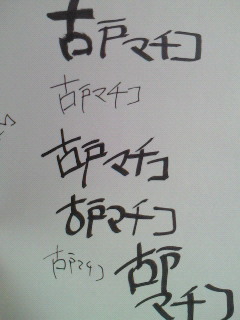 古戸マチコ
古戸マチコ
古戸マチコ
古戸マチコ
古戸マチコ
古戸
マチコ